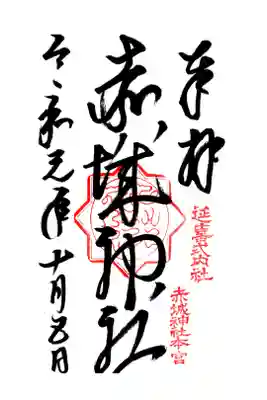 奉拝
延喜式内社
赤城神社本宮
赤城神社
令和元年十月五日